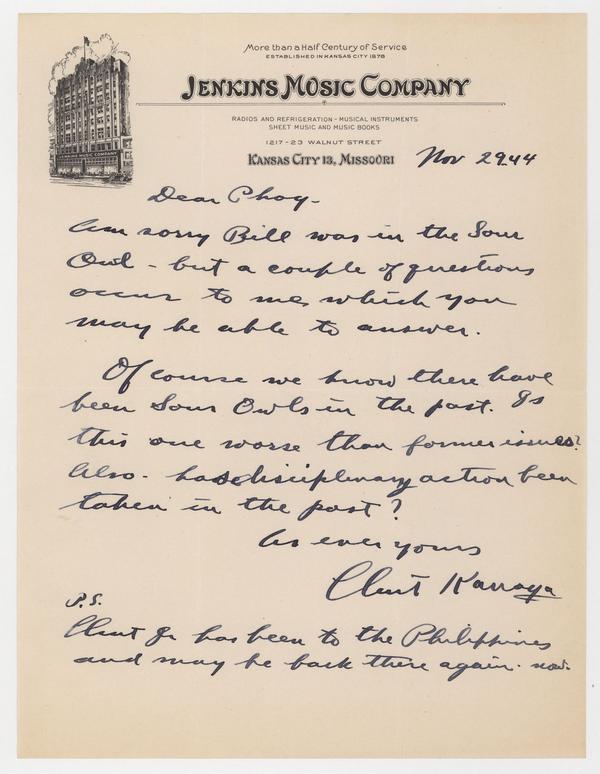 More than a Half Century of Service
ESTABLISHED IN KANSAS CITY 1878
JENKINS MUSIC COMPANY
RADIOS AND REFRIGERATION - MUSICAL INSTRUMENTS
SHEET MUSIC AND MUSIC BOOKS
1217-23 WALNUT STREET
KANSAS CITY 13, MISSOURI Nov 29.44
MUSIC COMPANY
Dear Phog-
Am sorry Bill was in the Sour
Owl - but a couple of questions
occur to me, which you
may be able to answer.
Of course we know there have
been Sour Owls in the past. Is
this one worse than former issues?
Also - has disciplinary action been
taken in the past?
As ever yours
Clint
P.S.
Clint Jr has been to the Philippines
and may be back there again. now.